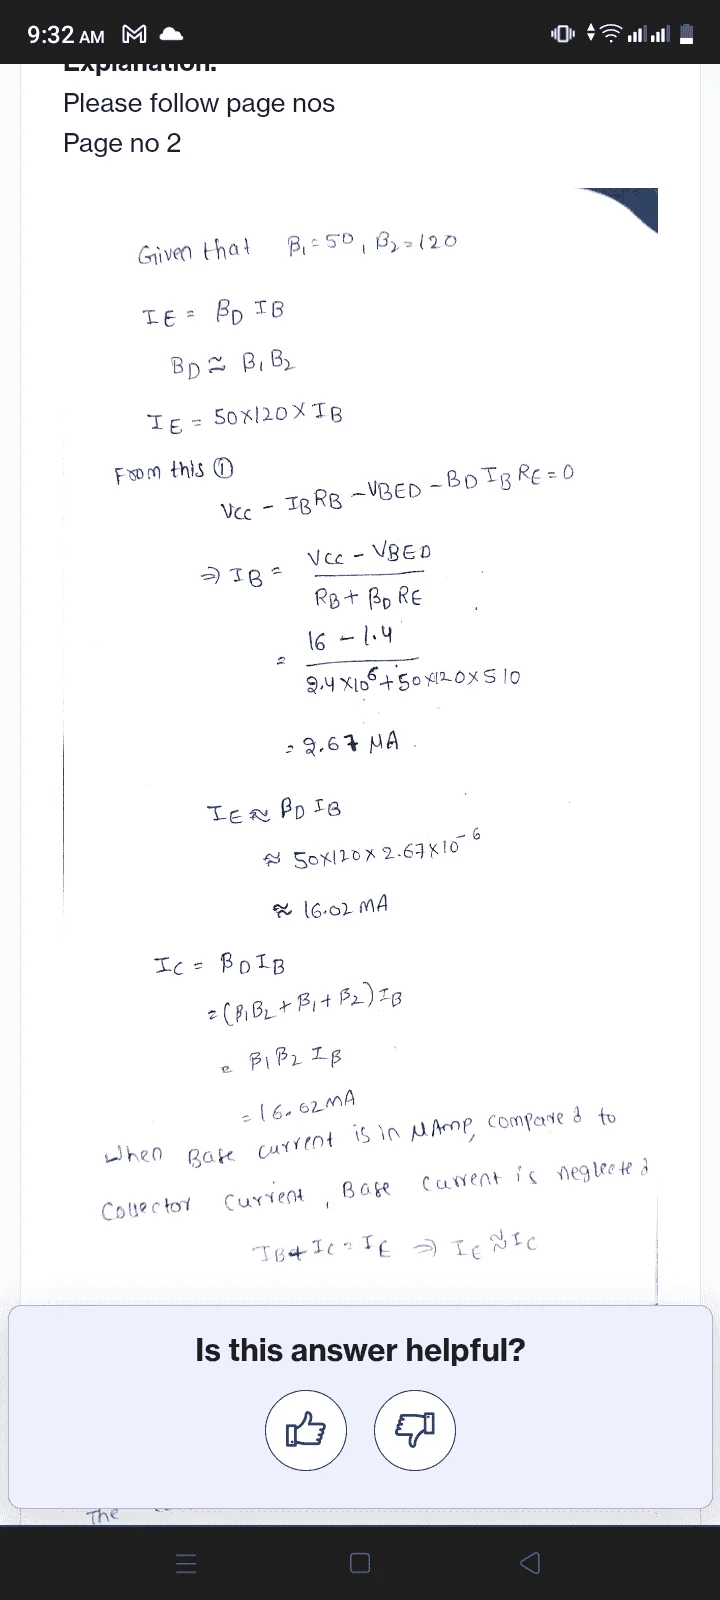 9:32 AM
Explanation:
Please follow page nos
Page no 2
Given that β₁=50, β₂=120
IE = βD IB
βD ≈ β₁β₂
IE = 50×120×IB
From this ①
Vcc - IBRB - VBED - βD IB RE = 0
⇒ IB = Vcc - VBED
RB + βD RE
= 16 - 1.4
2.4×10⁶+50×120×510
= 2.67 μA.
IE ≈ βD IB
≈ 50×120×2.67×10⁻⁶
≈ 16.02 mA
IC = βD IB
= (β₁β₂ + β₁ + β₂) IB
= β₁ β₂ IB
= 16.02 mA
When Base current is in μAmp, compared to
Collector current, Base current is neglected
IB + IC = IE ⇒ IE ≈ IC
Is this answer helpful?
The